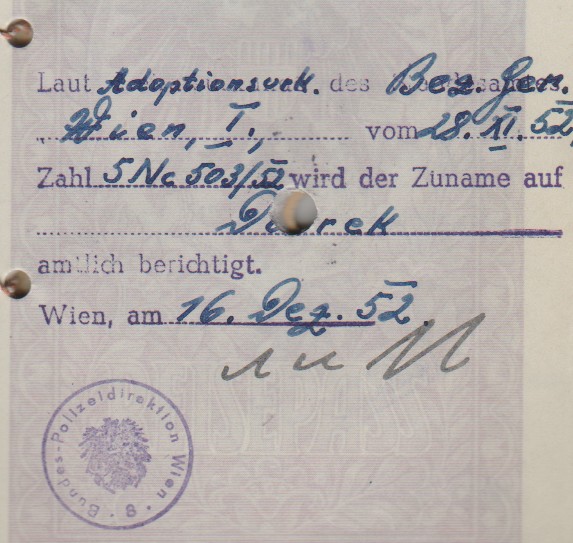 Laut Adoptionsurk. des Bez. Ger.
Wien, I., vom 28. XI. 52,
Zahl 5 Nc 503/52 wird der Zuname auf
amtlich berichtigt.
Wien, am 16. Dez. 52.
Bundes-Polizeidirektion Wien
8
REISEPASS